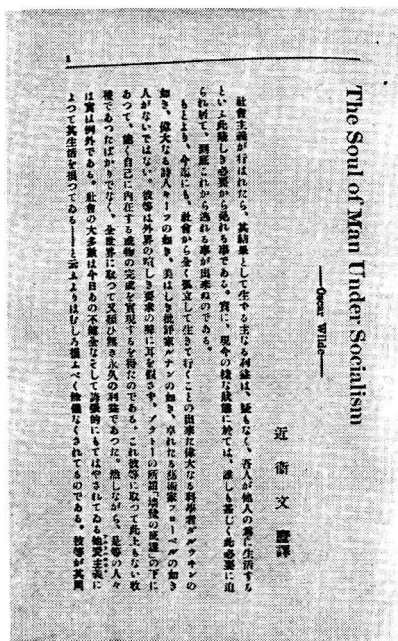 The Soul of Man Under Socialism
——Oscar Wilde——
近衞文麿譯
社會主義が行はれたら、其結果として生ずる主なる利益は、疑もなく、吾人が他人の爲に生活する
といふ此悲しき必要から免れる事である。實に、現今の樣な狀態に於ては、誰しも甚しく此必要に迫
られ居て、到底これから逃れる事が出來ぬのである。
もとより、今迄にも、社會から全く孤立して生きて行くことの出來た偉大なる科學者ダルウヰンの
如き、偉大なる詩人キーツの如き、美はしき批評家ルナンの如き、卓れたる藝術家フローベルの如き
人がないではない。彼等は外界の喧しき要求の聲に耳を假さず、プラトーの所謂「墻壁の庇護」の下に
あつて、遂く自己に內在する或物の完成を實現するを得たのである。これ彼等に取つて此上もない收
穫であつたばかりでなく、全世界に取つて又類ひ無き永久の利益であつた。然しながら、是等の人々
は實は例外である。社會の大多數は今日あの不健全なそして誇張的にもてはやされてゐる他愛主義に
よつて其生活を損つてゐる——と云ふよりはむしろ損ふべく餘儀なくされてるのである。彼等が其周
1